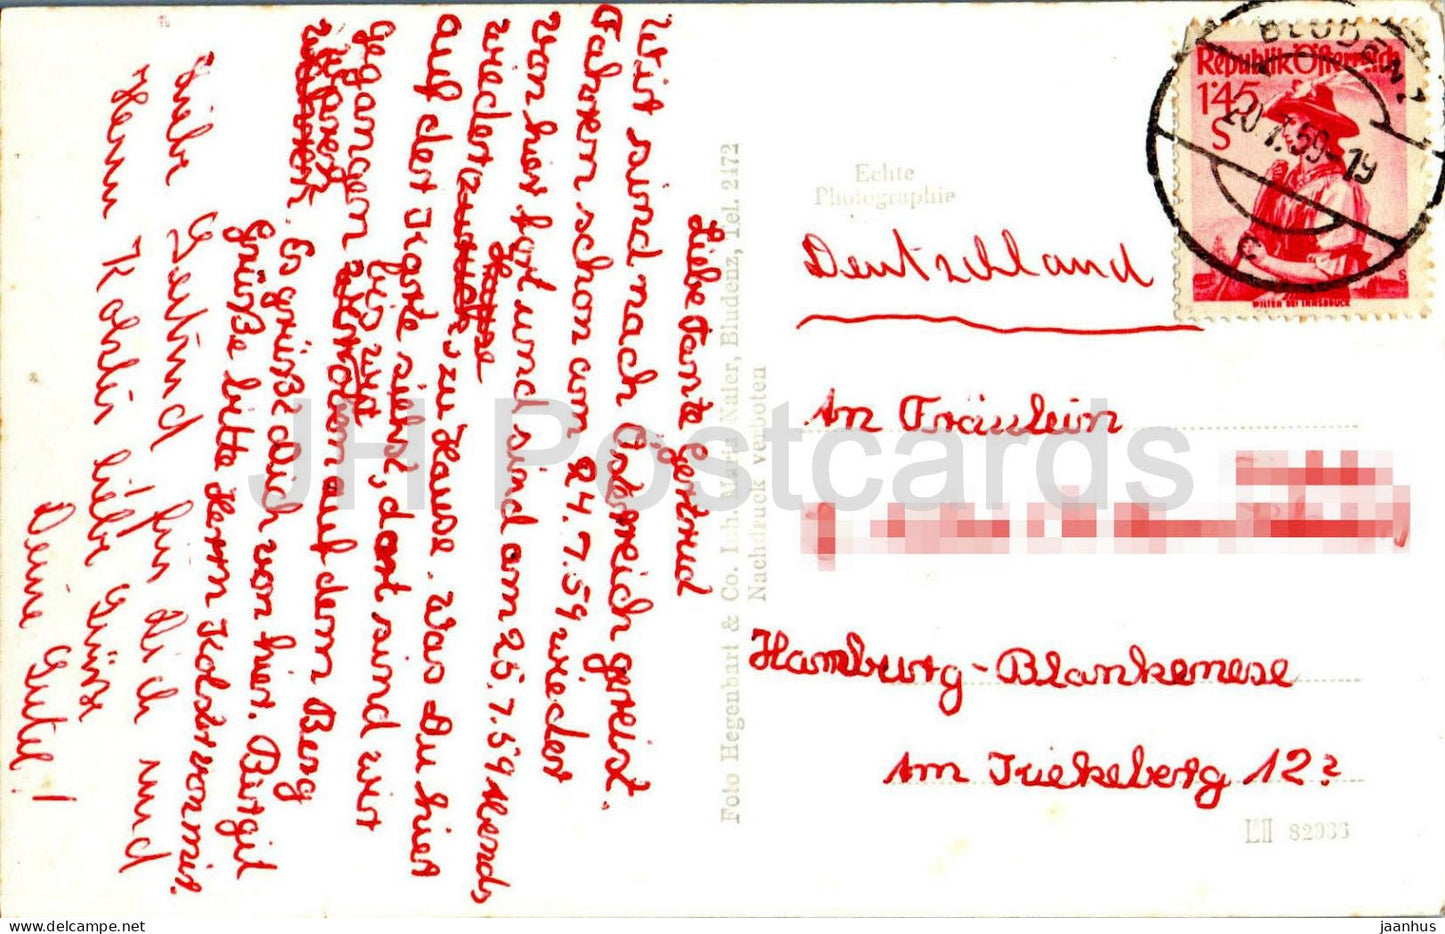 Liebe Tante Gertrud
Wir sind nach Österreich gereist.
Fahren schon am 24.7.59 wieder
von hier fort und sind am 25.7.59 Abends
wieder zu Hause. Was Du hier
auf der Karte siehst, dort sind wir
gegangen bis wir oben auf dem Berg
waren. Es grüßt Dich von hier. Birgit
Grüße bitte Herrn Kohlervormit.
Liebe Gertrud für dich und
Herrn Kohler liebe Grüsse
Deine Gretel!
Foto Hegenbart & Co. Inh. Maria Naler, Bludenz, Tel. 2172
Nachdruck verboten
Echte
Photographie
BLUDENZ 1
20.7.59-19
c
Republik Österreich
145
S
WILTEN BEI INNSBRUCK
Deutschland
An Fräulein
Hamburg-Blankenese
Am Kiekeberg 12?
LII 82036
JH Postcards
jaanhus